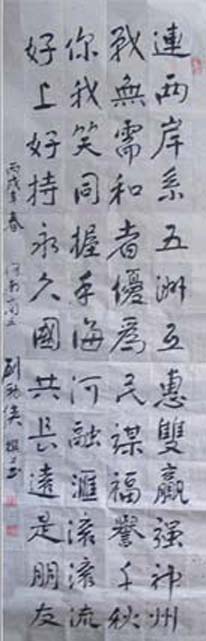 連两岸系五洲互惠雙赢强神州
战無需和者優爲民謀福譽千秋
你我笑同握手海河融滙滚滚流
好上好持永久國共長遠是朋友
丙戌年春 河南商丘 撰书